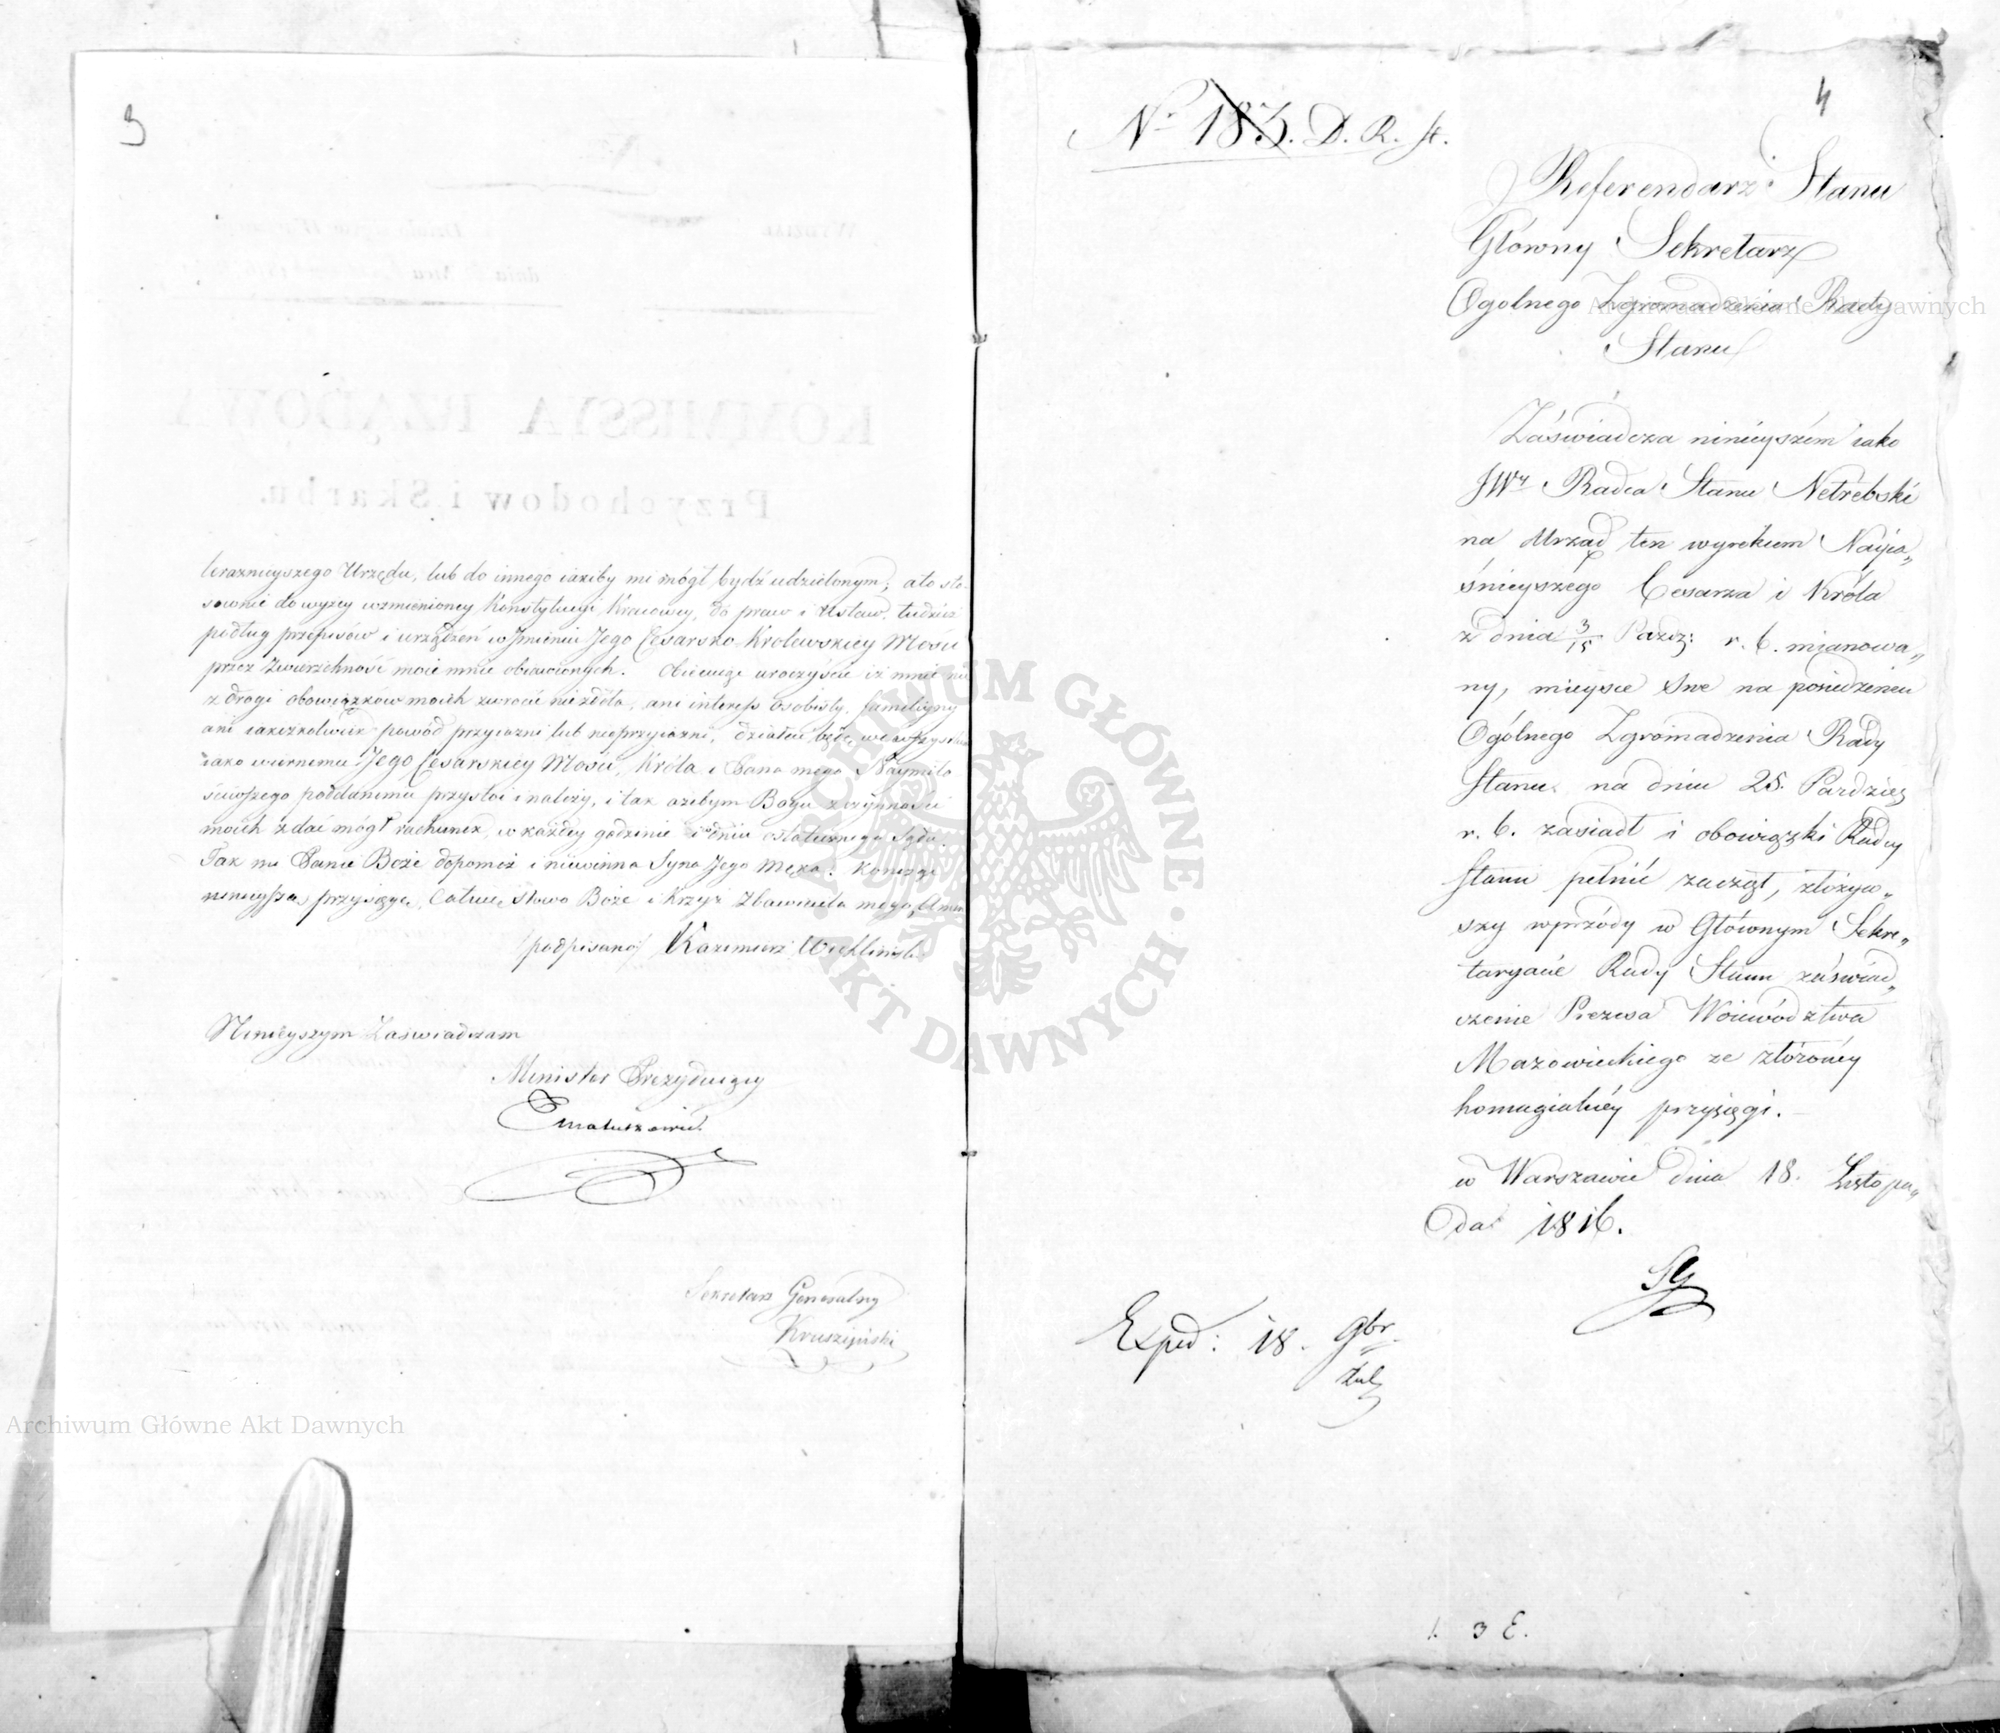 3
teraznieyszego Urzędu, lub do innego iakiby mi mógł bydź udzielonym; a to sto-
sownie do wyżey wzmienioney Konstytucyi Kraiowey, do praw i Ustaw, tudzież
podług przepisów i urządzeń w Imieniu Jego Cesarsko-Krolewskiey Mosci
przez Zwierzchność moię mnie obiawionych. Obiecuię uroczyście iż mnie nic
z drogi obowiązków moich zwrocić niezdoła, ani interess osobisty, familiyny
ani iakizkolwiek powód przyiazni lub nieprzyiazni, działać będę we wszystkim
iako wiernemu Jego Cesarskiey Mosci, Króla i Pana mego Naymiło
ściwszego poddanemu przystoi i należy, i tak ażebym Bogu z czynności
moich zdać mógł rachunek, w każdey godzinie i w dniu ostatecznego Sądu.
Tak mi Panie Boże dopomóż i niewinna Syna Jego Męka. Kończąc
ninieyszą przysięgę, Całuię słowo Boże i Krzyż Zbawiciela mego, Amen
/podpisano/ Kazimierz Wichliński
Ninieyszym Zaswiadczam
Minister Prezyduiący
Matuszewic
Sekretarz Generalny
Kruszyński
4
Nr 183. D. R. St.
Referendarz Stanu
Główny Sekretarz
Ogolnego Zgromadzenia Rady
Stanu
Zaświadcza ninieyszém iako
JWy Radca Stanu Netrebski
na Urząd ten wyrokiem Nayia„
śnieyszégo Cesarza i Króla
z dnia 3/15 Paźdz: r. b. mianowa„
ny, mieysce Swe na posiedzeniu
Ogólnego Zgromadzenia Rady
Stanu na dniu 25. Paździer
r. b. zasiadł i obowiązki Radcy
Stanu pełnić zaczął, złożyw„
szy wprzódy w Głównym Sekre„
taryacie Rady Stanu zaświad„
czenie Prezesa Woiewództwa
Mazowieckiego ze złożonéy
homagialnéy przysięgi.
w Warszawie dnia 18. Listopa„
da 1816.
Exped: 18. 9br
1. 3 E.
ARCHIWUM GŁÓWNE AKT DAWNYCH
Archiwum Główne Akt Dawnych
Archiwum Główne Akt Dawnych